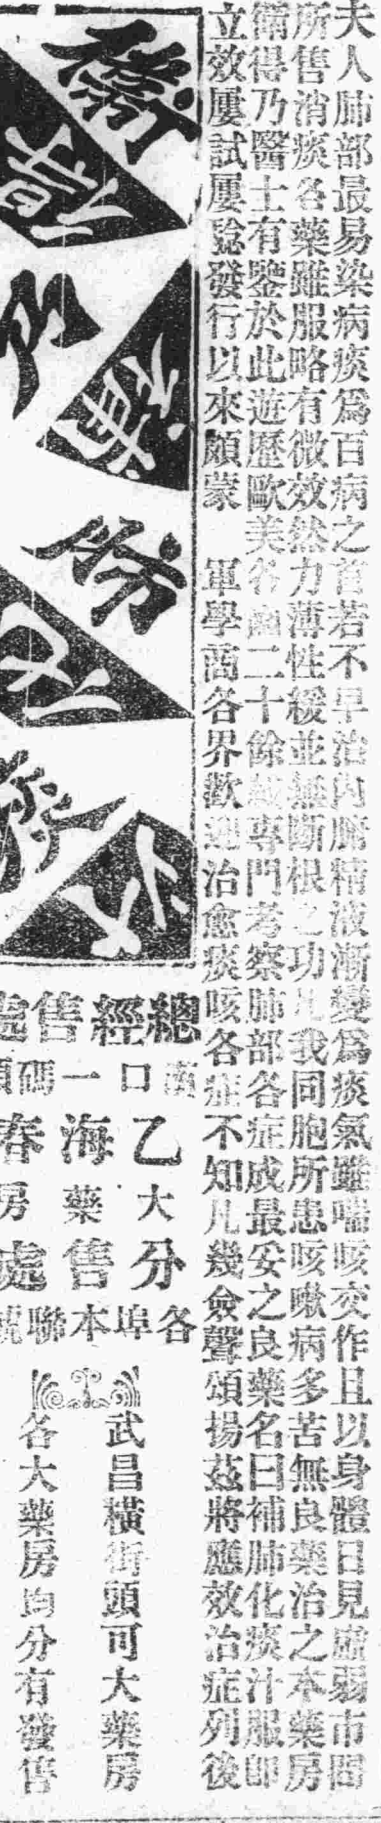 夫人肺部最易染病痰爲百病之首若不早治內臟精液漸變爲痰氣雖喘咳交作且以身體日見虛弱市間
所售消痰各藥雖服略有微效然力薄性緩並無斷根之功凡我同胞所患咳嗽病多苦無良藥治之本藥房
備得乃醫士有鑒於此遊歷歐美各國二十餘載專門考察肺部各症成最妥之良藥名曰補肺化痰汁服即
立效屢試屢驗發行以來頗蒙 軍學商各界歡迎治愈痰咳各症不知凡幾僉聲頌揚茲將應效治症列後
補
總經售處
漢口一碼頭
乙海春
大藥房
分售處
各埠本聯號
武昌橫街頭可大藥房
各大藥房均分有發售